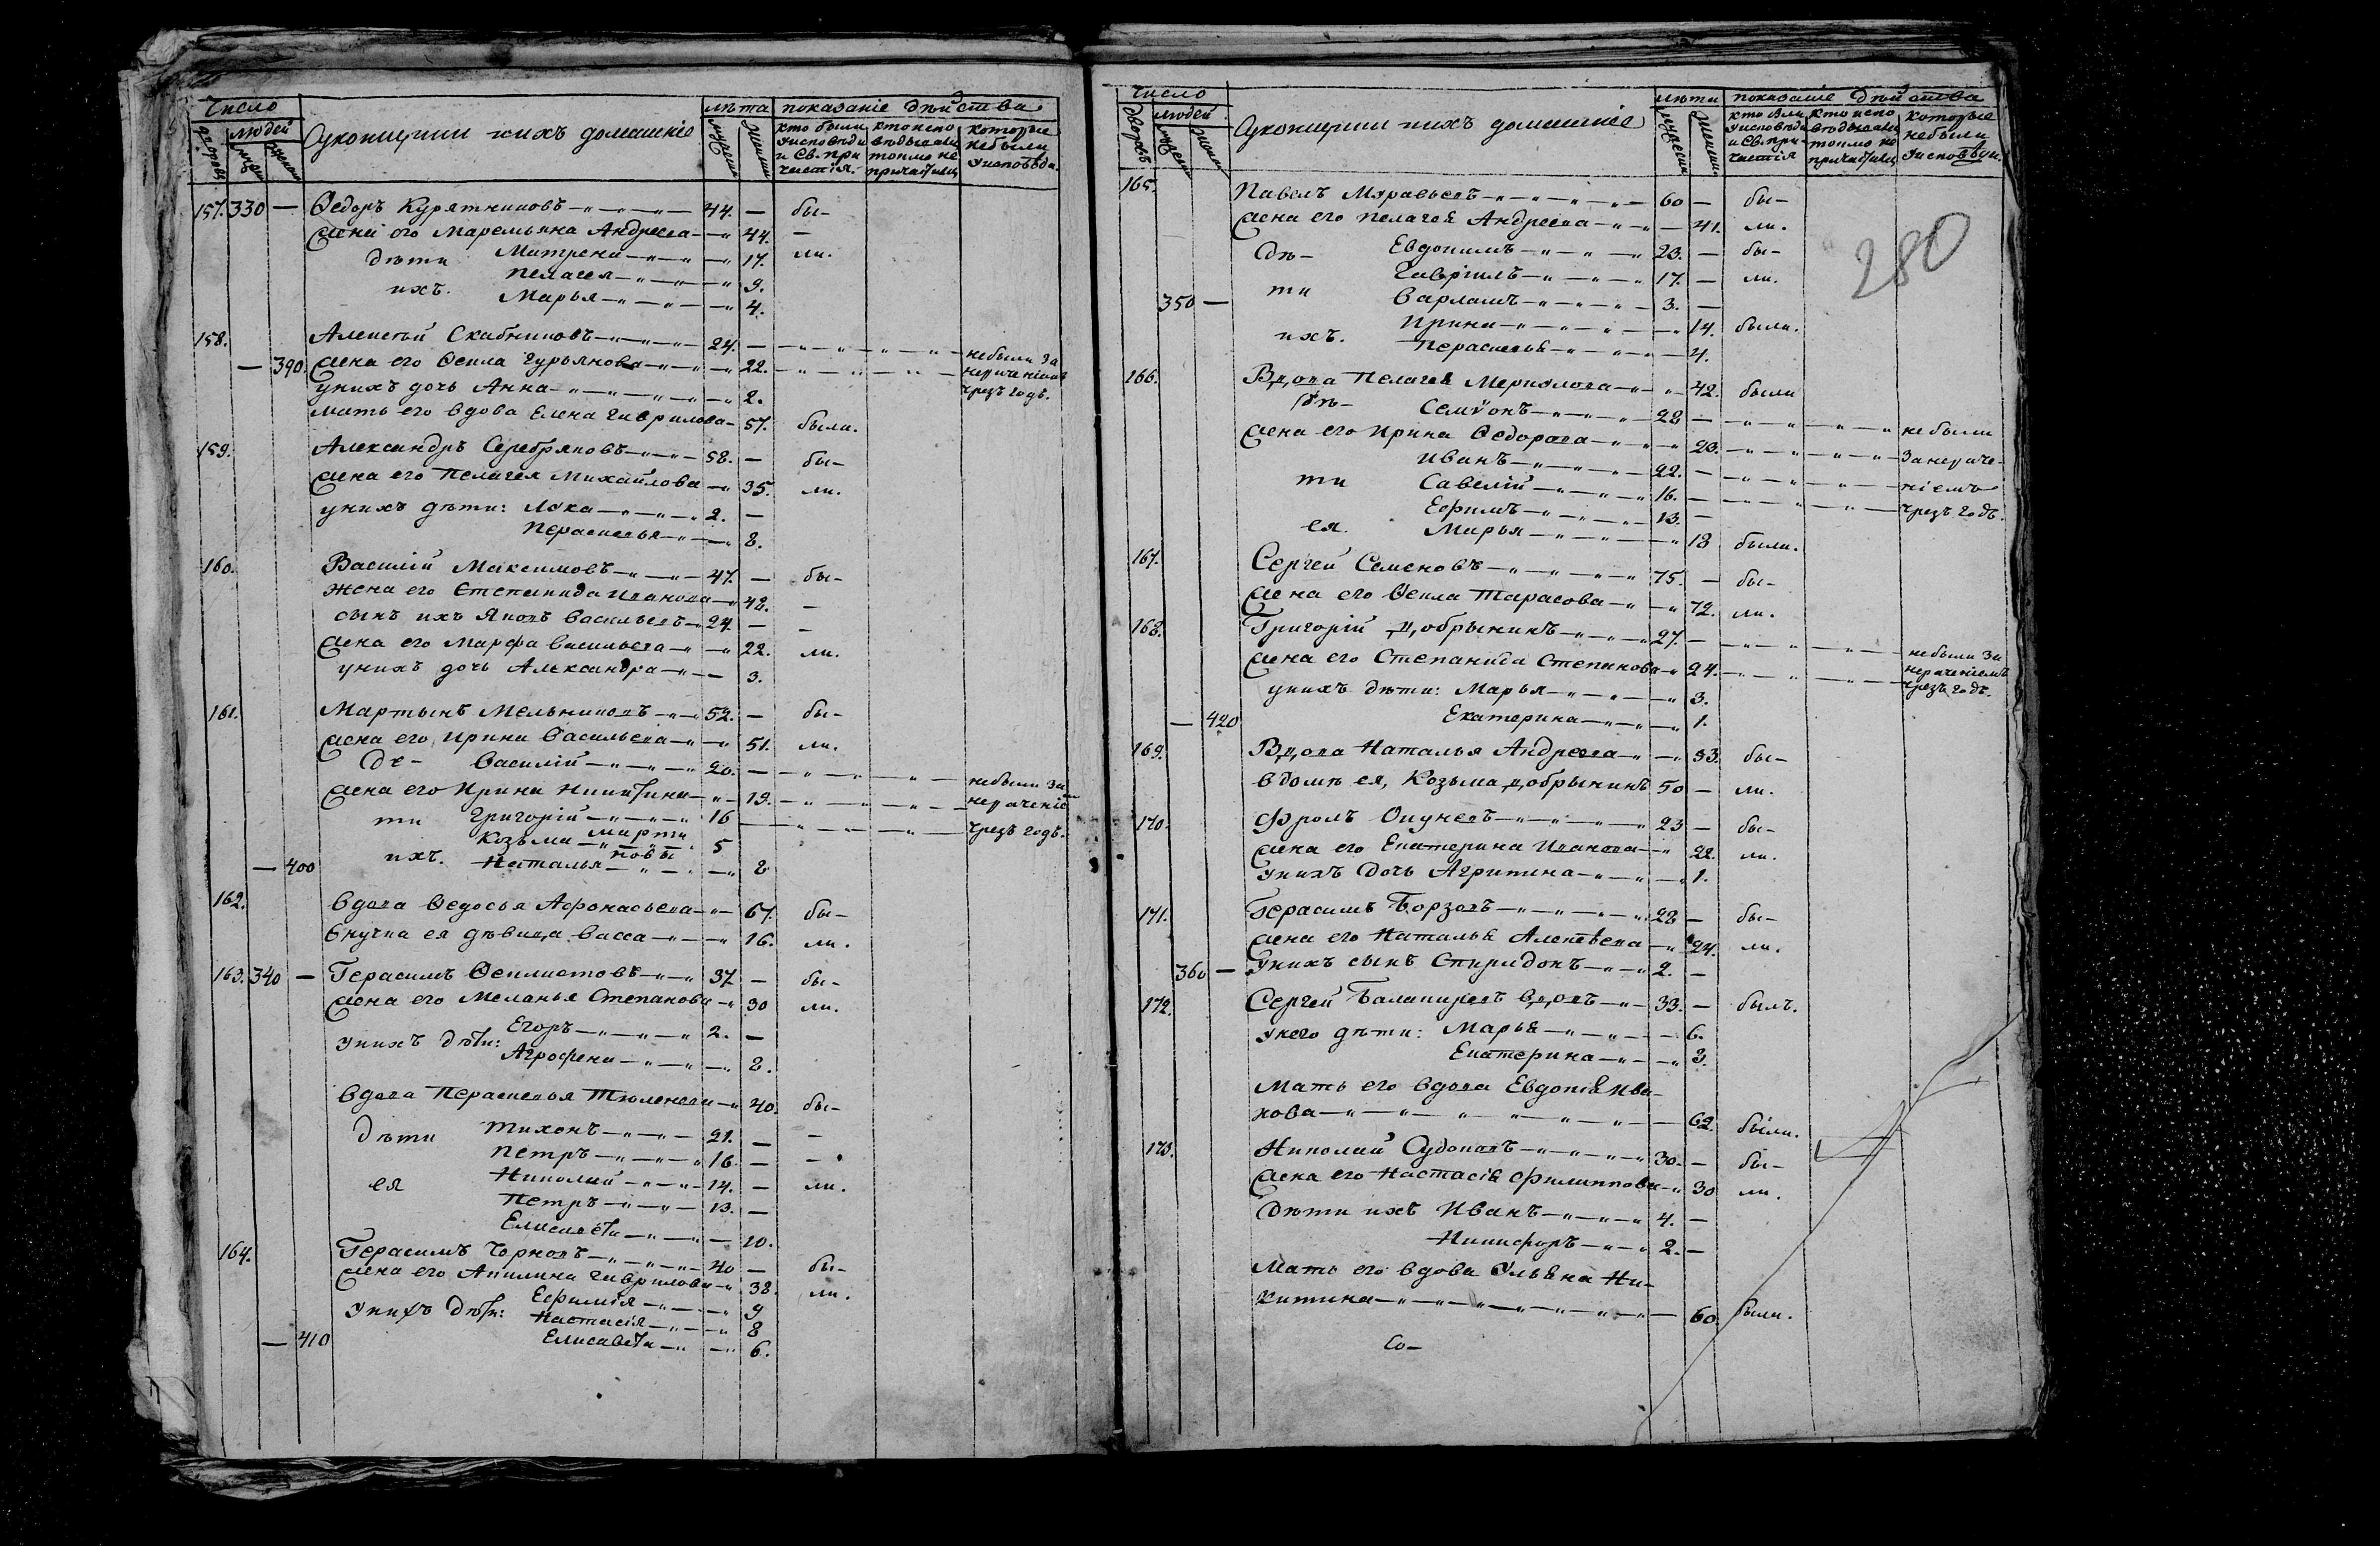 Число
людей
лѣта показаніе дѣйства
дворовъ
мужеск женск
Духовнии ихъ домашніе
мужеска женска
кто были у исповѣди и Св. причастія.
кто исповѣдывались токмо не причастились
которые небыли у исповѣди.
157. 330 — Ѳедоръ Курятниковъ 44. — бы-
Жена его Маремьяна Андреева 44. —
дѣти Матрена 17. ли.
Пелагея 9.
ихъ. Марья 4.
158. Алексѣй Скабниковъ 24. — небыли за
— 390. Жена его Ѳекла Гурьянова 22. нераченіемъ
у нихъ дочь Анна 2. чрезъ годъ.
мать его вдова Елена Гаврилова 57. были.
159. Александръ Серебряковъ 58. — бы-
Жена его Пелагея Михайлова 35. ли.
у нихъ дѣти: Лука 2. —
Перасковья 8.
160. Василій Максимовъ 47. — бы-
Жена его Степанида Иванова 48. —
сынъ ихъ Яковъ Васильевъ 24. — —
Жена его Марфа Васильева 22. ли.
у нихъ дочь Александра 3.
161. Мартынъ Мельниковъ 52. — бы-
Жена его Ирина Васильева 51. ли.
дѣ- Василій 20. — небыли за
Жена его Ирина Никитина 19. нераченіе
ти Григорій 16 — чрезъ годъ.
Козьма Марти 5
новы
ихъ.
— 400 Наталья 8
162. Вдова Ѳедосья Афонасьева 67. бы-
Внучка ея дѣвица Васса 16. ли.
163. 340 — Герасимъ Ѳеклистовъ 37 — бы-
Жена его Меланья Степанова 30 ли.
Егоръ 2. —
у нихъ дѣти:
Агрофена 2.
Вдова Перасковья Тюленева 40. бы-
дѣти Тихонъ 21. — —
Петръ 16. — —
ея Николай 14. — ли.
Петръ 13. —
Елисавета 10.
164. Герасимъ Чорновъ 40 — бы-
Жена его Акилина Гаврилова 38. ли.
Ефимія 9
у нихъ дѣти: Настасія 8
— 410 Елисавета 6.
Число
людей
лѣта показаніе дѣйства
дворовъ
мужеск женск
Духовнии ихъ домашніе
мужеска женска
кто были у исповѣди и Св. причастія
кто исповѣдывались токмо не причастились
которые небыли у исповѣди.
280
165. Павелъ Муравьевъ 60 — бы-
Жена его Пелагея Андреева 41. ли.
Дѣ- Евдокимъ 23. — бы-
Гавріилъ 17. — ли.
ти
350 — Варламъ 3. —
Ирина 14. были.
ихъ. Перасковья 4.
166. Вдова Пелагея Меркулова 42. были
дѣ- Семіонъ 28 — небыли
Жена его Ирина Ѳедорова 23. за нераче-
Иванъ 22. — ніемъ
ти Савелій 16. — чрезъ годъ.
Ефимъ 13. —
ея. Марья 18 были.
167. Сергей Семеновъ 75. — бы-
Жена его Ѳекла Тарасова 72. ли.
168. Григорій Добрынинъ 27. — небыли за
Жена его Степанида Степанова 24. нераченіемъ
у нихъ дѣти: Марья 3. чрезъ годъ.
— 420 Екатерина 1.
169. Вдова Наталья Андреева 53. бы-
в домѣ ея, Козьма Добрынинъ 50 — ли.
170. Фролъ Окуневъ 23 — бы-
Жена его Екатерина Иванова 22. ли.
у нихъ дочь Агрипина 1.
171. Герасимъ Борзовъ 28 — бы-
Жена его Наталья Алексѣева 24. ли.
360 — у нихъ сынъ Спиридонъ 2. —
172. Сергей Балакиревъ вдовъ 33. — былъ.
у него дѣти: Марья 6.
Екатерина 3.
Мать его вдова Евдокія Ива-
нова 62. были.
173. Николай Судоковъ 30. — бы-
Жена его Настасія Филиппова 30 ли.
Дѣти ихъ Иванъ 4. —
Никифоръ 2. —
Мать его вдова Ульяна Ни-
китина 60. были.
Со-